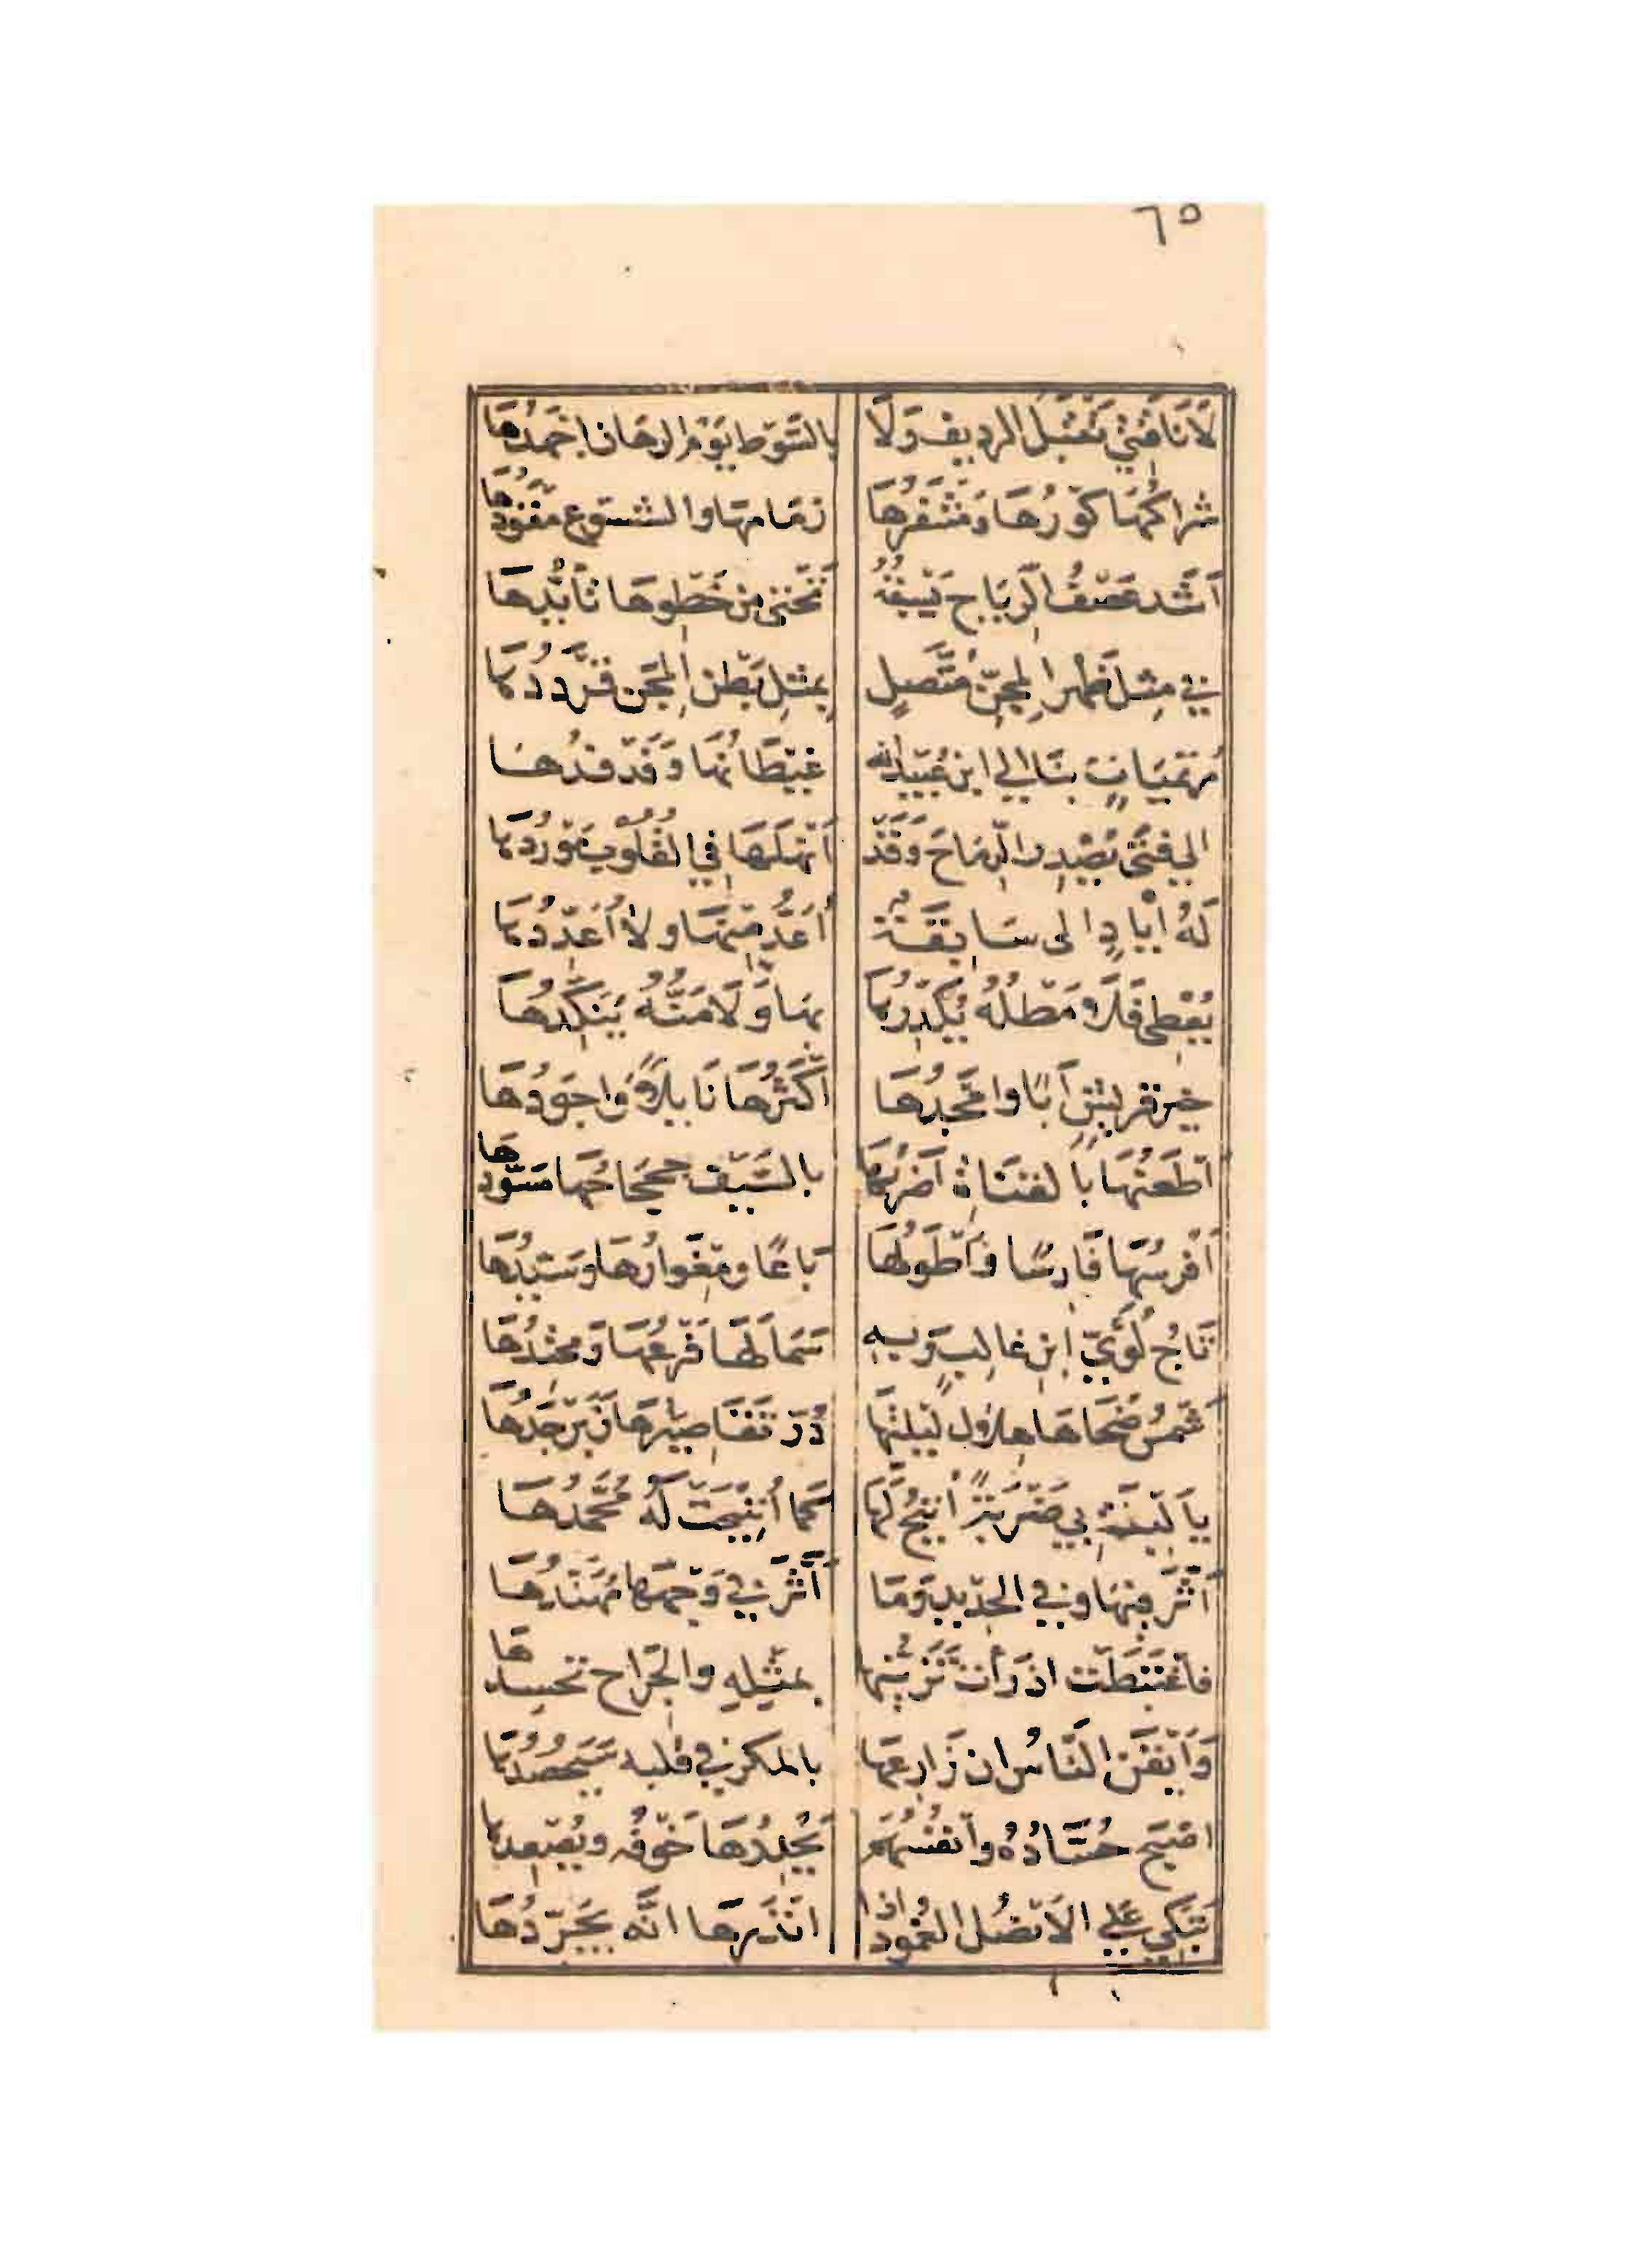 ٦٥
لَا نَاقَتِي تَقْبَلُ الرديف وَلَا بالسَّوْط يَوْمَ الرهان اجْهَدُهَا
شراكُهَا كوْرُهَا وَمِشْفَرُهَا زمَامهَا والشسوع مقْوَدُهَا
اَشَد عَصْفُ الرِّيَاح يَسْبِقُهُ تَحْتي من خَطْوِهَا تَأَيُّدُهَا
في مِثْل ظَهْر المِجَنِّ مُتَّصِلٍ بمثْلِ بَطْن المِجَن قَرْدَدُهَا
مرتميَاتٍ بنَا الي ابن عُبَيْدِ الله غيْطَانُهَا وَفَدْفدُهَا
الي فتًى يُصْدِر الرِّمَاحَ وَقَدْ اَنْهَلَهَا في القُلُوبِ مَوْرُدُهَا
لَهُ اَيَادٍ الى سَابِقَةٌ أُعَدُّ مِنْهَا ولا أُعَدِّدُهَا
يُعْطِي فَلَا مَطْلُهُ يُكَدِّرُهَا بهَا وَلَا مَنُّهُ يُنَكِّدُهَا
خير قريشٍ اَبًا وامْجَدُهَا اَكْثَرُهَا نَايلًا وَاجوَدُهَا
اَطْعَنُهَا بالقنَاةِ اَضْرَبُهَا بالسَّيْف جحجَاحُهَا مسَوّدهَا
اَفْرسُهَا فَارِسًا وَاَطْوَلُهَا بَاعًا ومِغْوارُهَا وسَيدُهَا
تَاجُ لُؤَيِّ ابنِ غالبٍ وَبهِ سَمَا لَهَا فَرْعُهَا وَمحْتِدُهَا
شَمْسُ ضُحَاهَا هِلال لَيْلتِهَا دُرّ تَقَاصِيْرهَا زَبَرْجَدُهَا
يا لَيْتَ بي ضَرْبَةً أُتِيْحُ لَهَا كمَا أُتِيْحَتْ لَه مُحَمَّدُهَا
اَثَّرَ فيهَا وفي الحَدِيدِ وَمَا اَثَّرَ في وَجْهِهَا مُهَنَّدُهَا
فاغْتَبَطَتْ اذ رَأَت تَزَيُّنهَا بمثْلِهِ والجَرَاح تحسدهَا
وَاَيْقَنَ النَّاسُ ان زَارِعَهَا بالمكر في قلبه سَيَحْصُدُهَا
اصْبَح حُسَّادُهُ وَاَنفُسُهُم يُحْدِرُهَا خَوْفُه ويُصْعِدهَا
تَبْكي عَلي الاَنْصُل الغُمُودُ اذا انْذَرهَا انَّه يُجَرِّدُهَا